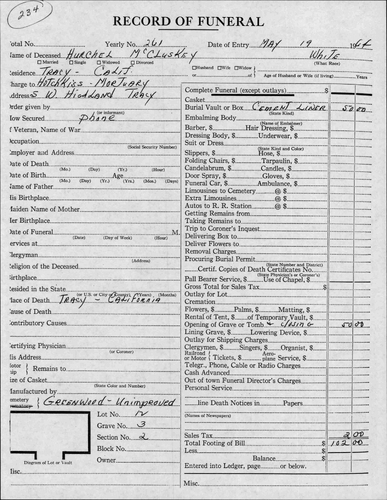 234
RECORD OF FUNERAL
Total No. Yearly No. 261 Date of Entry MAY 19
Name of Deceased HURCHEL McCLUSKEY WHITE
Married Single Widowed Divorced (What Race)
Residence TRACY - CALIF. Husband Wife Widow of Age of Husband or Wife (if living) Years
Charge to HOTCHKISS - MORTUARY
Address W. HIGHLAND TRACY
Order given by
How Secured phone
If Veteran, Name of War
Occupation
(Social Security Number)
Employer and Address
Date of Death
(Mo.) (Day) (Yr.)
Date of Birth Age
(Mo.) (Day) (Yr.) (Yrs.) (Mos.) (Days)
Name of Father
His Birthplace
Maiden Name of Mother
Her Birthplace
Date of Funeral M.
(Date) (Day of Week) (Hour)
Services at
Clergyman
(Address)
Religion of the Deceased
Birthplace
Resided in the State
(or U.S. or City or County) (Years) (Months)
Place of Death TRACY - CALIFORNIA
Cause of Death
Contributory Causes
Certifying Physician
(or Coroner)
His Address
Motor Remains to
Size of Casket
(State Color and Number)
Manufactured by
Cemetery GREENWOOD - UNIMPROVED
Lot No. 12
Grave No. 3
Section No. 2
Block No.
Owner
Diagram of Lot or Vault
Disc.
Complete Funeral (except outlays) $
Casket
Burial Vault or Box CEMENT LINER 50 00
(State Kind)
Embalming Body
(Name of Embalmer)
Barber, $ Hair Dressing, $
Dressing Body, $ Underwear, $
Suit or Dress
(State Kind and Color)
Slippers, $ Hose, $
Folding Chairs, $ Tarpaulin, $
Candelabrum, $ Candles, $
Door Spray, $ Gloves, $
Funeral Car, $ Ambulance, $
Limousines to Cemetery @ $
Extra Limousines @ $
Autos to R. R. Station @ $
Getting Remains from
Taking Remains to
Trip to Coroner's Inquest
Delivering Box to
Deliver Flowers to
Removal Charges
Procuring Burial Permit
(State Number and District)
Certif. Copies of Death Certificates No.
(State Physician's or Coroner's)
Pall Bearer Service, $ Use of Chapel, $
Gross Total for Sales Tax $
Outlay for Lot
Cremation
Flowers, $ Palms, $ Matting, $
Rental of Tent, $ of Temporary Vault, $
Opening of Grave or Tomb 50 00
Lining Grave, $ Lowering Device, $
Outlay for Shipping Charges
Clergymen, $ Singers, $ Organist, $
Railroad or Motor Tickets, $ Aeroplane Service, $
Telegr., Phone, Cable or Radio Charges
Cash Advanced
Out of town Funeral Director's Charges
Personal Service
line Death Notices in Papers
(Names of Newspapers)
Sales Tax 2 00
Total Footing of Bill $ 102 00
Less $
Balance $
Entered into Ledger, page or below.
Misc.